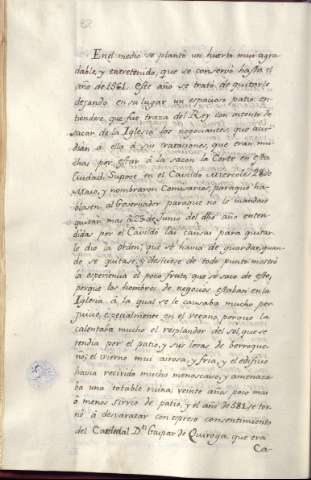 En el medio se plantó un huerto mui agra-
dable, y entretenido, que se conservó hasta el
año de 1561. este año se trató de quitarle
dejando en su lugar un espacioso patio: en-
tiendese, que fue traza del Rey con intento de
sacar de la Iglesia los negociantes, que acu-
dian á ella á sus trataciones, que eran mu-
chas por estar á la sazon la Corte en esta
Ciudad. Supose en el Cavildo Miercoles 28 de
Maio, y nombraron Comisarios, paraque ha-
blasen al Governador paraque no lo mandase
quitar, mas á 25 de Junio del dho año enten-
didas por el Cavildo las causas para quitar-
le dio la orden, que se havia de guardar, quan-
do se quitase, y deshiciese de todo punto: mostró
la esperiencia el poco fruto, que se saco de esto,
porque los hombres de negocios, estaban en la
Iglesia, á la qual se le causaba mucho per-
juicio, especialmente en el verano, porque la
calentaba mucho el resplandor del sol que se
tendia por el patio, y sus losas de berroque-
no; el vierno mui airosa, y fria, y el edificio
havia recivido mucho menoscavo, y amenaza-
ba una totable ruina, veinte años poco mas
ó menos sirvió de patio, y el año de 581 se tor-
nó á desvaratar con espreso consentimiento
del Cardenal Dn Gaspar de Quiroga, que era
Ca-